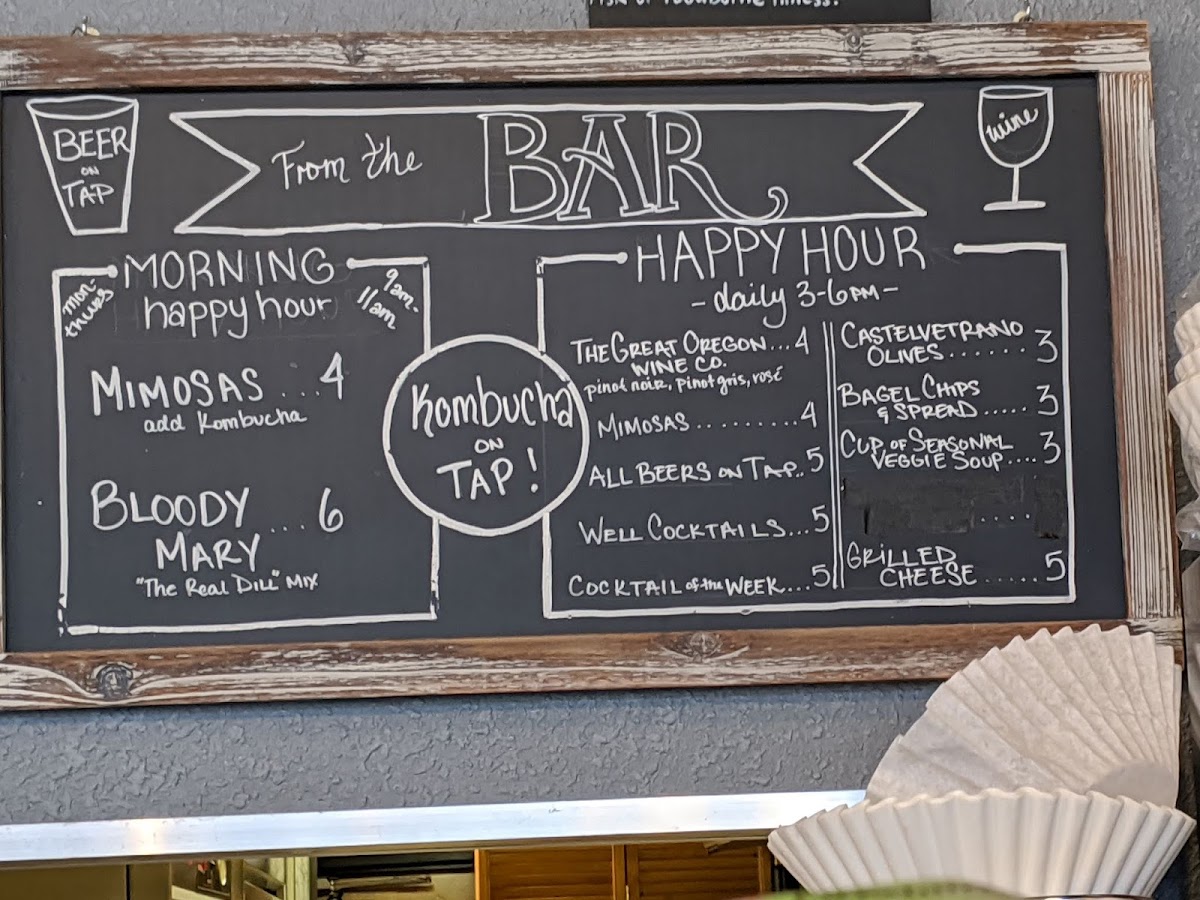 BEER
ON
TAP
From the BAR
wine
MORNING
happy hour
mon-
thurs
9am-
11am
MIMOSAS ...4
add Kombucha
BLOODY
MARY ...6
"The Real Dill" MIX
Kombucha
ON
TAP!
HAPPY HOUR
-daily 3-6PM-
THE GREAT OREGON...4
WINE CO.
pinot noir, pinot gris, rosé
MIMOSAS.........4
ALL BEERS ON TAP..5
WELL COCKTAILS...5
COCKTAIL of the WEEK...5
CASTELVETRANO
OLIVES......3
BAGEL CHIPS
& SPREAD.....3
CUP OF SEASONAL
VEGGIE SOUP....3
....
GRILLED
CHEESE.....5